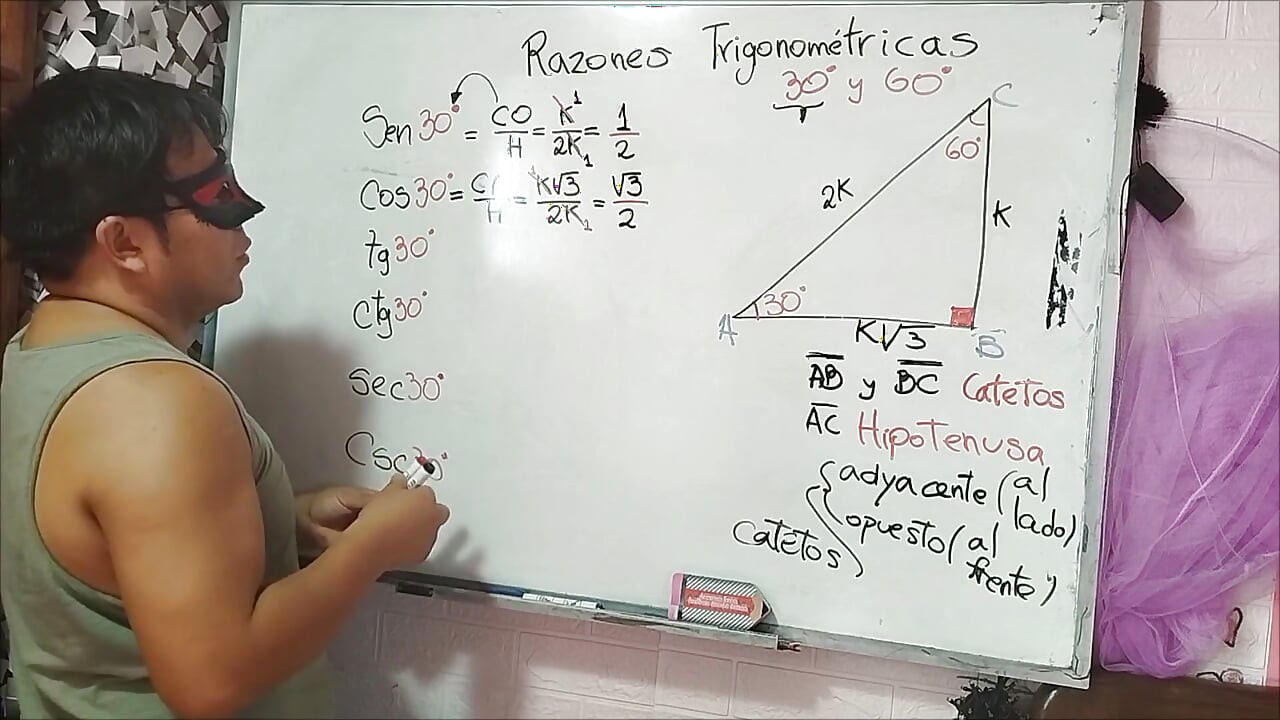 Razones Trigonométricas
30° y 60°
Sen 30° = CO/H = K/2K = 1/2
1
1
Cos 30° = C/H = K√3/2K = √3/2
1
1
tg 30°
ctg 30°
Sec 30°
Csc 30°
C
60°
2K
K
30°
A
K√3
B
AB y BC Catetos
AC Hipotenusa
Catetos
adyacente (al lado)
opuesto (al frente)